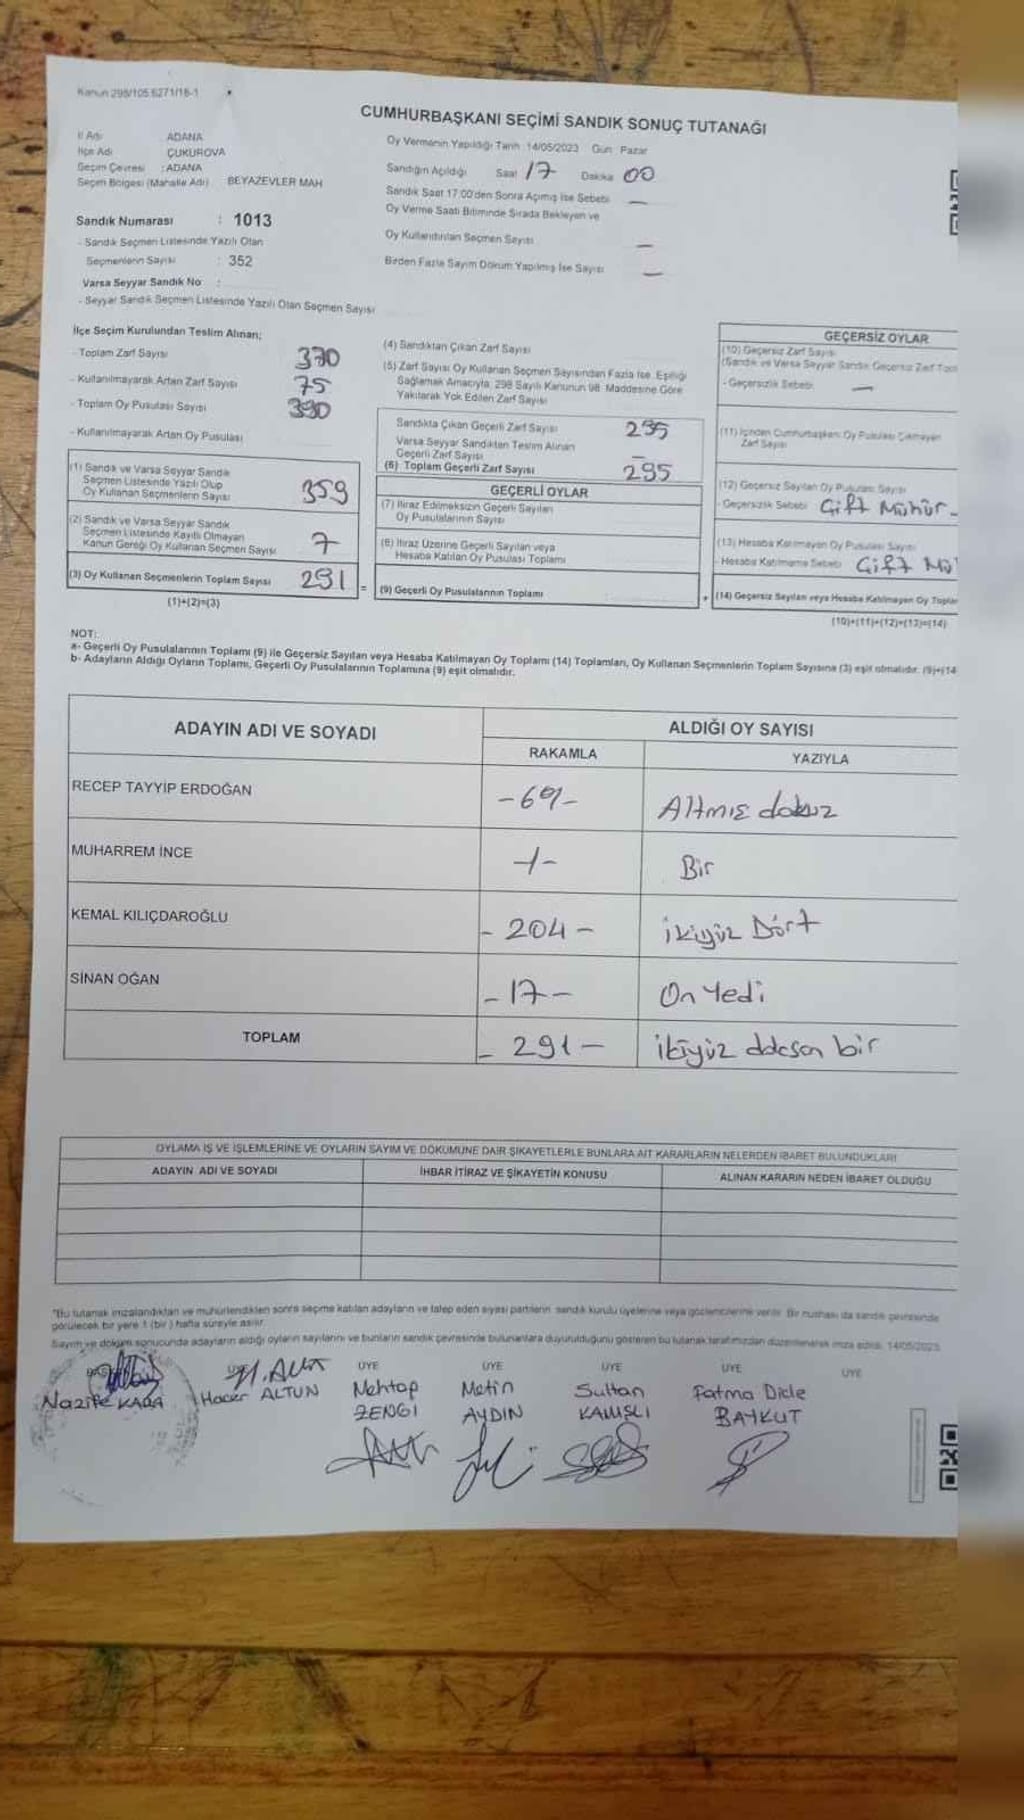 Kanun 298/105 6271/16-1
CUMHURBAŞKANI SEÇİMİ SANDIK SONUÇ TUTANAĞI
İl Adı ADANA
İlçe Adı ÇUKUROVA
Seçim Çevresi : ADANA
Seçim Bölgesi (Mahalle Adı) BEYAZEVLER MAH
Sandık Numarası : 1013
- Sandık Seçmen Listesinde Yazılı Olan
Seçmenlerin Sayısı : 352
Varsa Seyyar Sandık No :
- Seyyar Sandık Seçmen Listesinde Yazılı Olan Seçmen Sayısı
Oy Vermenin Yapıldığı Tarih : 14/05/2023 Gün : Pazar
Sandığın Açıldığı Saat 17 Dakika 00
Sandık Saat 17:00'den Sonra Açımış İse Sebebi —
Oy Verme Saati Bitiminde Sırada Bekleyen ve
Oy Kullandırılan Seçmen Sayısı —
Birden Fazla Sayım Döküm Yapılmış İse Sayısı —
İlçe Seçim Kurulundan Teslim Alınan;
- Toplam Zarf Sayısı 370
- Kullanılmayarak Artan Zarf Sayısı 75
- Toplam Oy Pusulası Sayısı 390
- Kullanılmayarak Artan Oy Pusulası
(1) Sandık ve Varsa Seyyar Sandık
Seçmen Listesinde Yazılı Olup
Oy Kullanan Seçmenlerin Sayısı 359
(2) Sandık ve Varsa Seyyar Sandık
Seçmen Listesinde Kayıtlı Olmayan
Kanun Gereği Oy Kullanan Seçmen Sayısı 7
(3) Oy Kullanan Seçmenlerin Toplam Sayısı 291 =
(1)+(2)=(3)
(4) Sandıktan Çıkan Zarf Sayısı
(5) Zarf Sayısı Oy Kullanan Seçmen Sayısından Fazla İse, Eşitliği
Sağlamak Amacıyla, 298 Sayılı Kanunun 98. Maddesine Göre
Yakılarak Yok Edilen Zarf Sayısı
Sandıkta Çıkan Geçerli Zarf Sayısı 295
Varsa Seyyar Sandıktan Teslim Alınan
Geçerli Zarf Sayısı —
(6) Toplam Geçerli Zarf Sayısı 295
GEÇERLİ OYLAR
(7) İtiraz Edilmeksizin Geçerli Sayılan
Oy Pusulalarının Sayısı
(8) İtiraz Üzerine Geçerli Sayılan veya
Hesaba Katılan Oy Pusulası Toplamı
(9) Geçerli Oy Pusulalarının Toplamı +
GEÇERSİZ OYLAR
(10) Geçersiz Zarf Sayısı
(Sandık ve Varsa Seyyar Sandık Geçersiz Zarf
- Geçersizlik Sebebi —
(11) İçinden Cumhurbaşkanı Oy Pusulası Çıkmayan
Zarf Sayısı
(12) Geçersiz Sayılan Oy Pusulası Sayısı
- Geçersizlik Sebebi Çift Mühür -
(13) Hesaba Katılmayan Oy Pusulası Sayısı
- Hesaba Katılmama Sebebi Çift Mü
(14) Geçersiz Sayılan veya Hesaba Katılmayan Oy Toplam
(10)+(11)+(12)+(13)=(14)
NOT:
a- Geçerli Oy Pusulalarının Toplamı (9) ile Geçersiz Sayılan veya Hesaba Katılmayan Oy Toplamı (14) Toplamları, Oy Kullanan Seçmenlerin Toplam Sayısına (3) eşit olmalıdır. (9)+(14
b- Adayların Aldığı Oyların Toplamı, Geçerli Oy Pusulalarının Toplamına (9) eşit olmalıdır.
ADAYIN ADI VE SOYADI ALDIĞI OY SAYISI
RAKAMLA YAZIYLA
RECEP TAYYİP ERDOĞAN -69- Altmış dokuz
MUHARREM İNCE -1- Bir
KEMAL KILIÇDAROĞLU - 204 - ikiyüz Dört
SİNAN OĞAN - 17 - On Yedi
TOPLAM - 291 - ikiyüz doksan bir
OYLAMA İŞ VE İŞLEMLERİNE VE OYLARIN SAYIM VE DÖKÜMÜNE DAİR ŞİKAYETLERLE BUNLARA AİT KARARLARIN NELERDEN İBARET BULUNDUKLARI
ADAYIN ADI VE SOYADI İHBAR İTİRAZ VE ŞİKAYETİN KONUSU ALINAN KARARIN NEDEN İBARET OLDUĞU
"Bu tutanak imzalandıktan ve mühürlendikten sonra seçime katılan adayların ve talep eden siyasi partilerin sandık kurulu üyelerine veya gözlemcilerine verilir. Bir nüshası da sandık çevresinde
görülecek bir yere 1 (bir) hafta süreyle asılır.
Sayım ve döküm sonucunda adayların aldığı oyların sayılarını ve bunların sandık çevresinde bulunanlara duyurulduğunu gösteren bu tutanak tarafımızdan düzenlenerek imza edildi. 14/05/2023
ÜYE ÜYE ÜYE ÜYE ÜYE
H. Altun
Nazife KARA Hacer ALTUN Mehtap ZENGİ Metin AYDIN Sultan KAMIŞLI Fatma Dicle BAYKUT